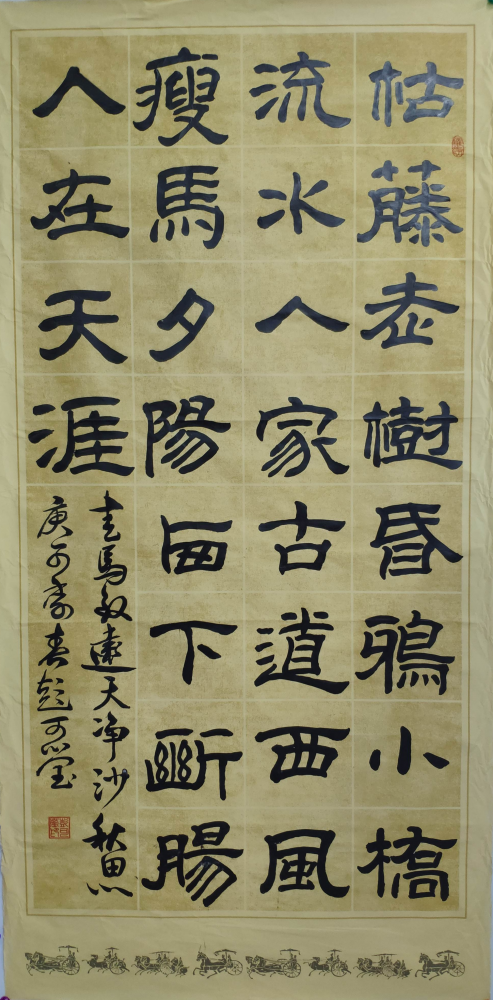 枯藤老樹昏鴉小橋
流水人家古道西風
瘦馬夕陽西下斷腸
人在天涯
书馬致遠天净沙 秋思
庚子季春彭可